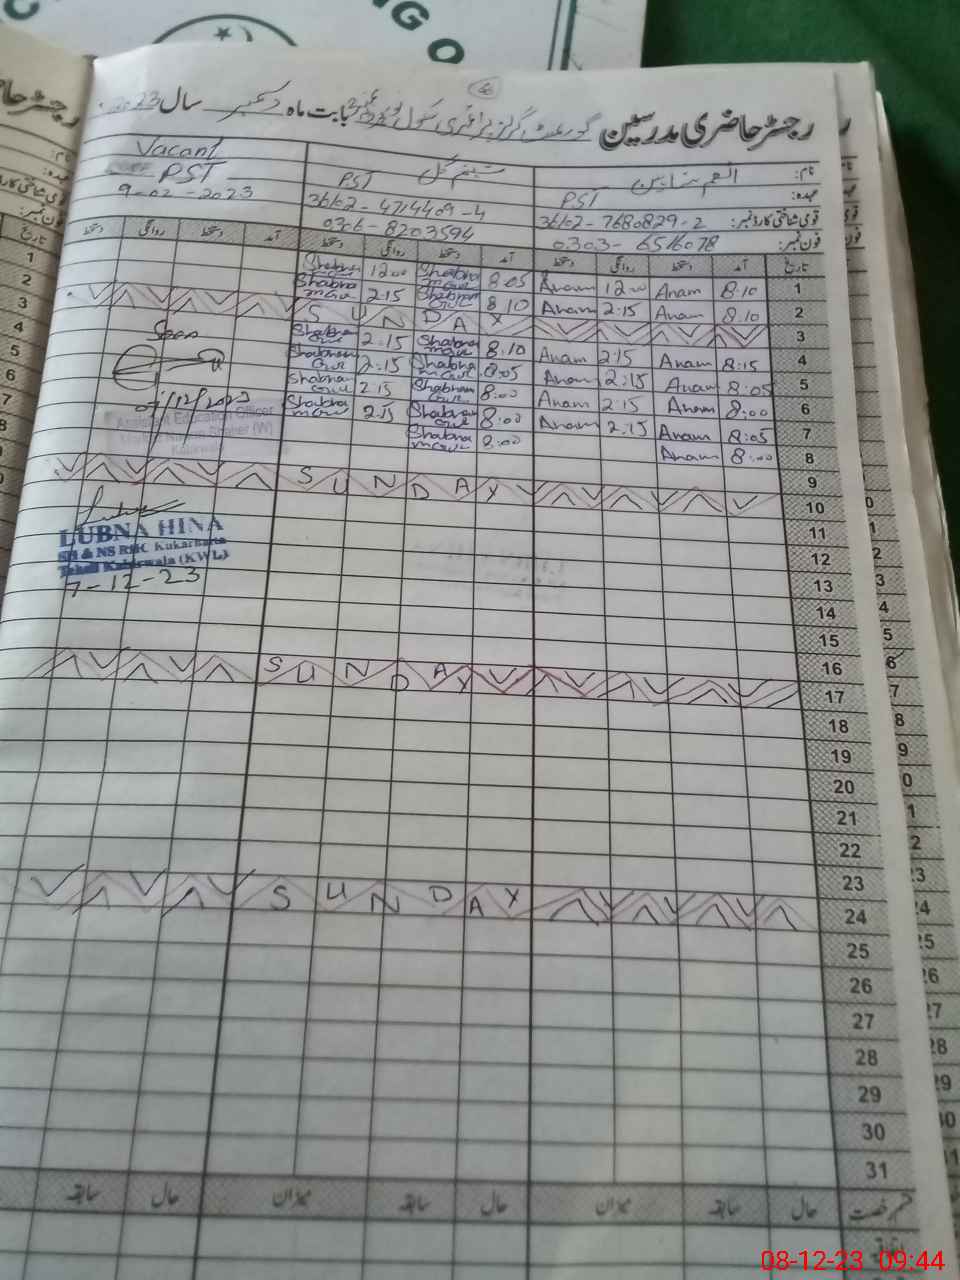 NGO
رجسٹر حاضری مدرسین گورنمنٹ گرلز پرائمری سکول بابت ماہ دسمبر سال 2023
نام: انعم شاہین
شبنم گل
Vacant
عہدہ: PST
PST
PST
قومی شناختی کارڈ نمبر: 36102-7680829-2
36102-4714409-4
9-02-2023
فون نمبر: 0303-6516078
0306-8203594
تاریخ آمد دستخط روانگی دستخط آمد دستخط روانگی دستخط آمد دستخط روانگی دستخط
1 8:10 Anam 12:00 Anam 8:05 Shabnam Gul 12:00 Shabnam Gul
2 8:10 Anam 2:15 Anam 8:10 Shabnam Gul 2:15 Shabnam Gul
3 SUNDAY
4 8:15 Anam 2:15 Anam 8:10 Shabnam Gul 2:15 Shabnam Gul
5 8:05 Anam 2:15 Anam 8:05 Shabnam Gul 2:15 Shabnam Gul
6 8:00 Anam 2:15 Anam 8:00 Shabnam Gul 2:15 Shabnam Gul
7 8:05 Anam 2:15 Anam 8:00 Shabnam Gul 2:15 Shabnam Gul
8 8:00 Anam 8:00 Shabnam Gul
Seen
07/12/2023
Assistant Education Officer
9
10 SUNDAY
11
LUBNA HINA
12
SH & NS RHC Kukarhatta
Tehsil Kabirwala (KWL)
13
7-12-23
14
15
16
17 SUNDAY
18
19
20
21
22
23
24 SUNDAY
25
26
27
28
29
30
31
حال سابقہ میزان حال سابقہ میزان حال سابقہ
08-12-23 09:44